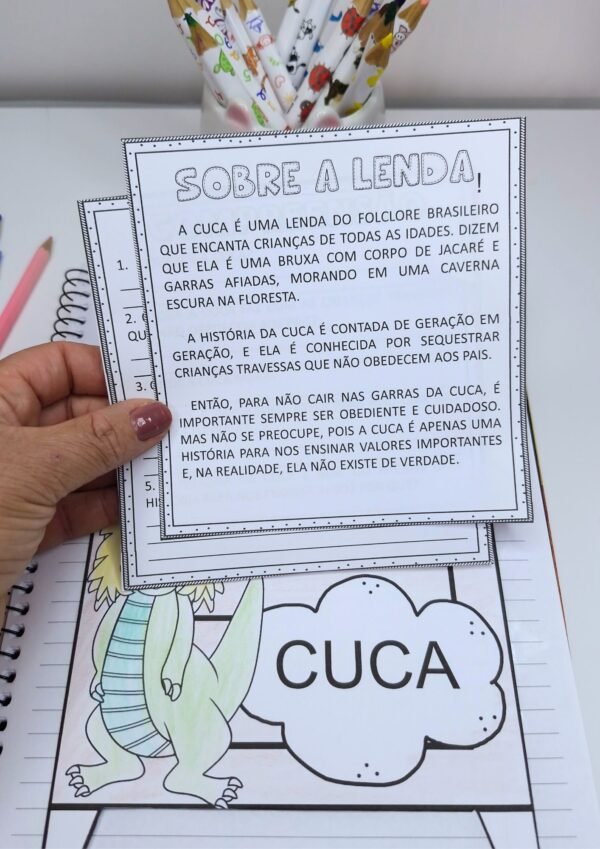 SOBRE A LENDA!
A CUCA É UMA LENDA DO FOLCLORE BRASILEIRO
QUE ENCANTA CRIANÇAS DE TODAS AS IDADES. DIZEM
QUE ELA É UMA BRUXA COM CORPO DE JACARÉ E
GARRAS AFIADAS, MORANDO EM UMA CAVERNA
ESCURA NA FLORESTA.
A HISTÓRIA DA CUCA É CONTADA DE GERAÇÃO EM
GERAÇÃO, E ELA É CONHECIDA POR SEQUESTRAR
CRIANÇAS TRAVESSAS QUE NÃO OBEDECEM AOS PAIS.
ENTÃO, PARA NÃO CAIR NAS GARRAS DA CUCA, É
IMPORTANTE SEMPRE SER OBEDIENTE E CUIDADOSO.
MAS NÃO SE PREOCUPE, POIS A CUCA É APENAS UMA
HISTÓRIA PARA NOS ENSINAR VALORES IMPORTANTES
E, NA REALIDADE, ELA NÃO EXISTE DE VERDADE.
1.
2.
3.
5.
CUCA